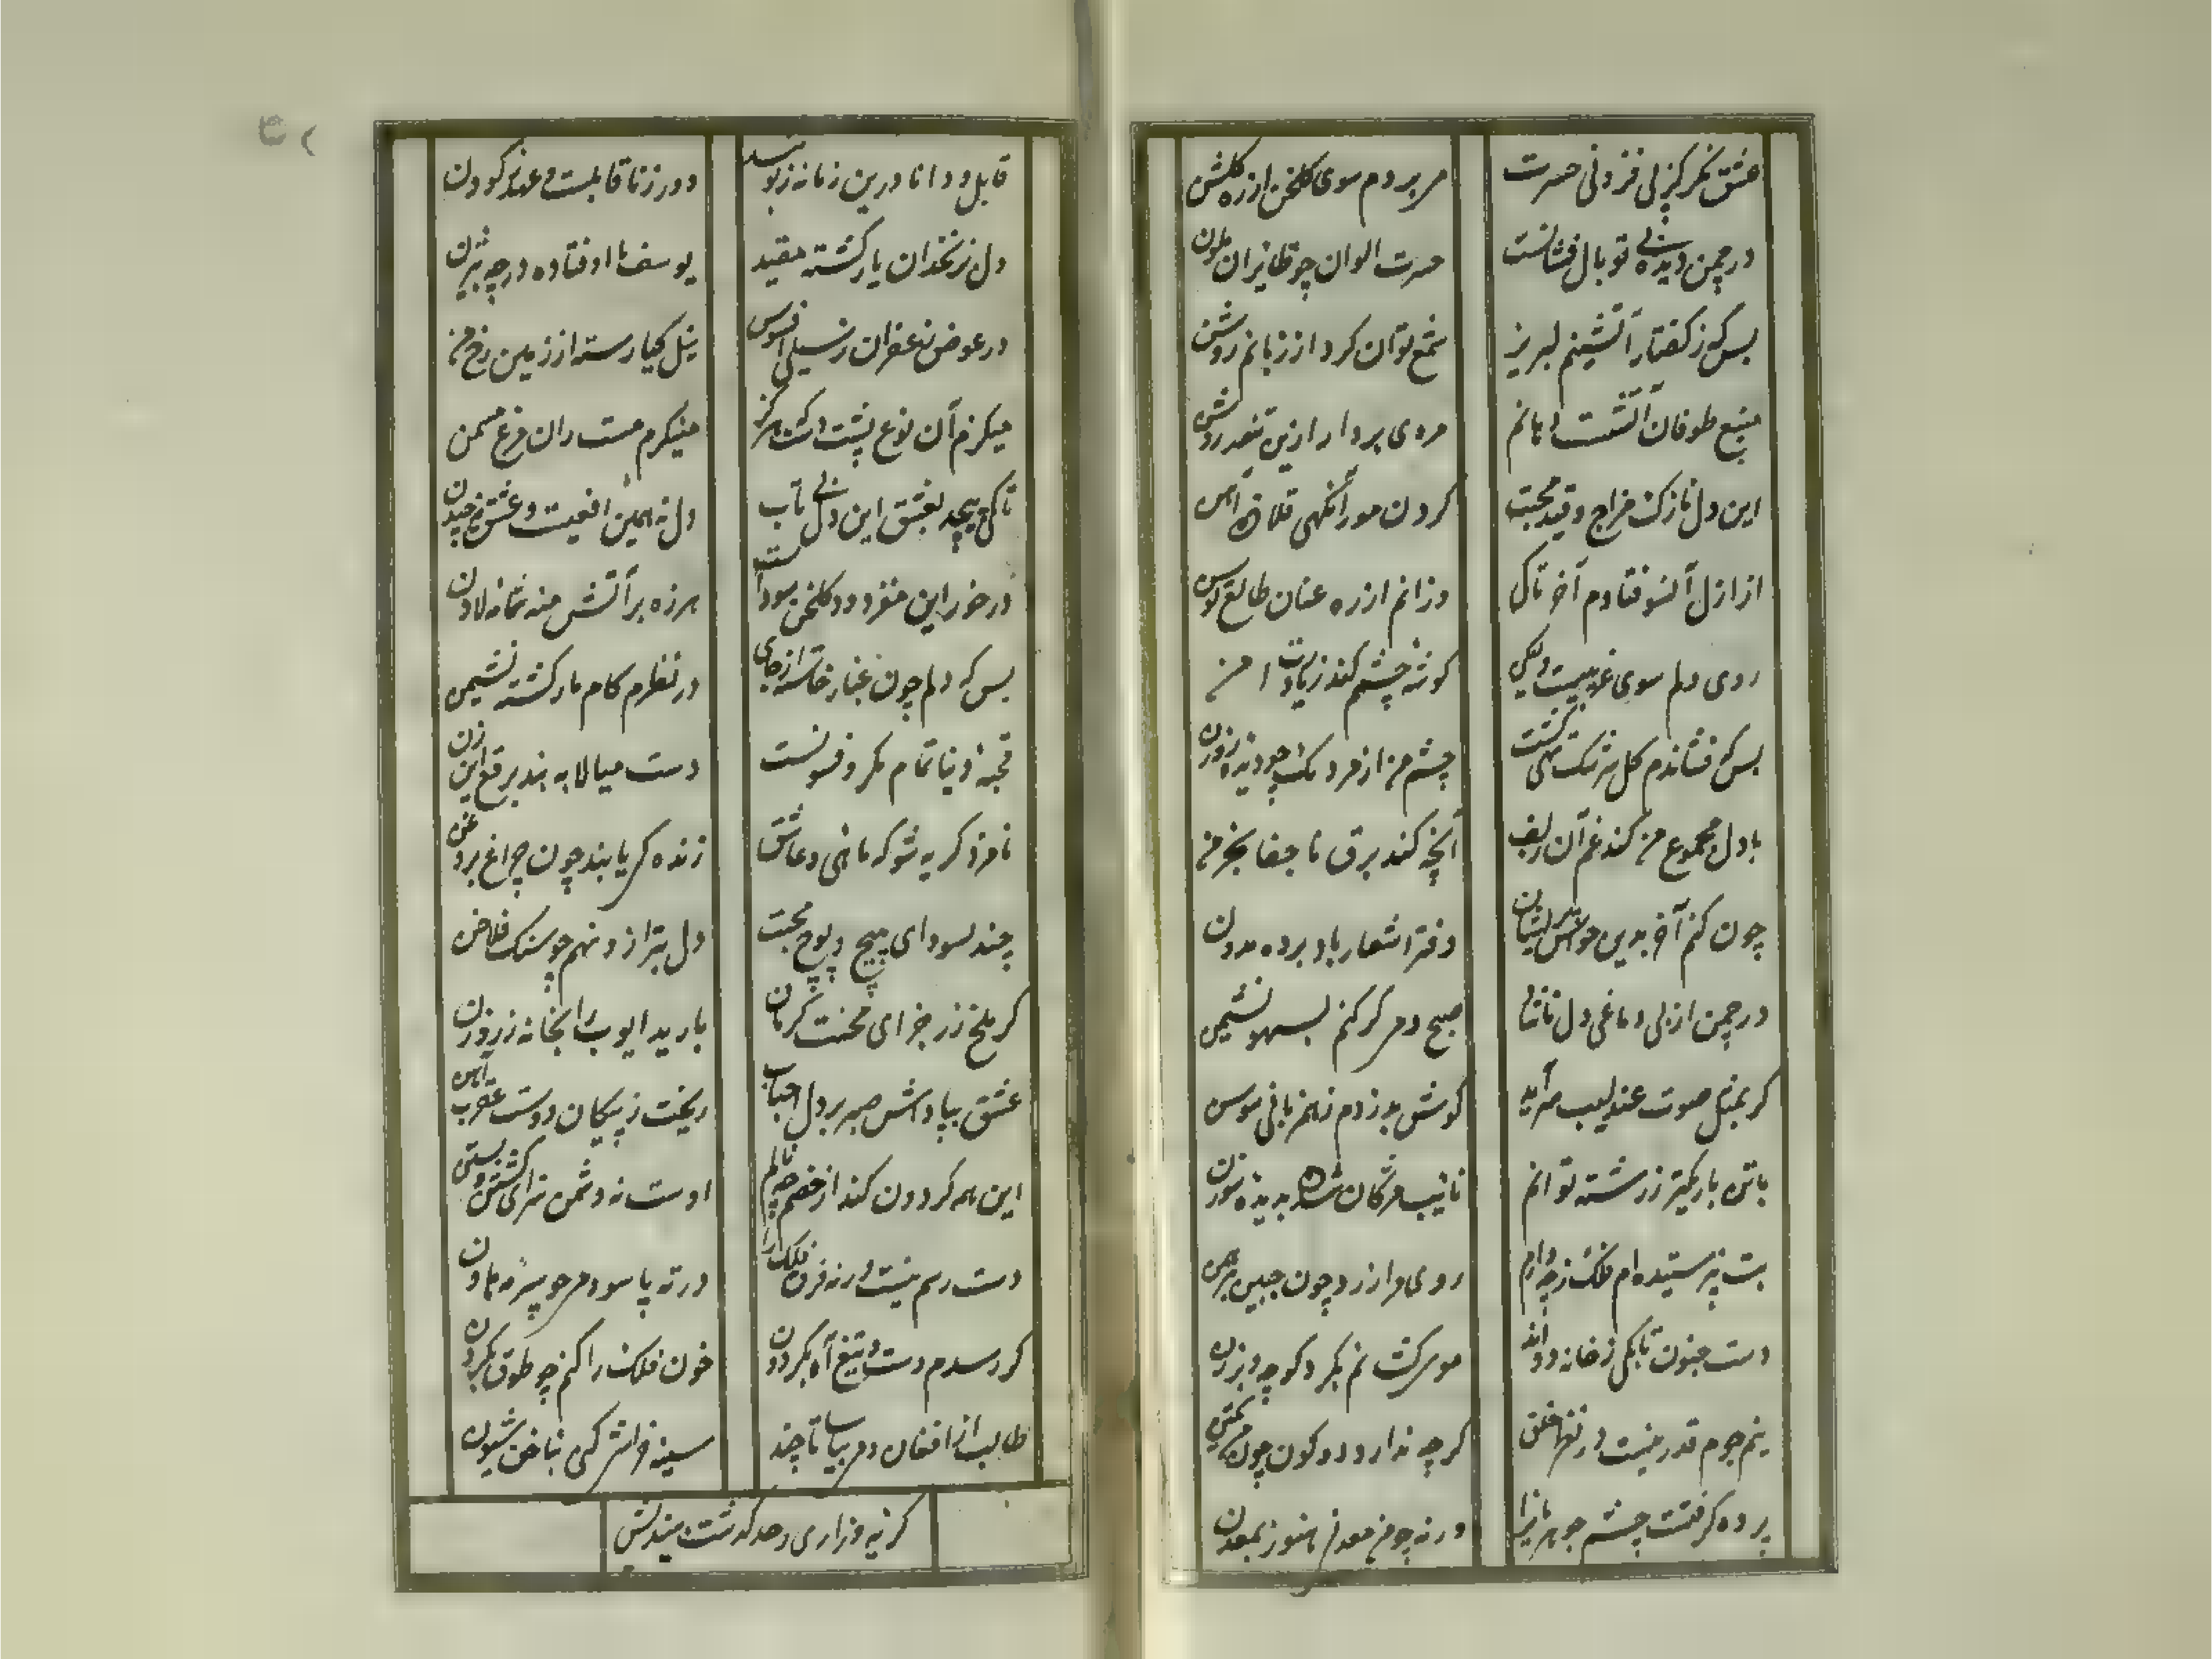 عشق نکر کز پی فزونی حسرت
می بردم سوی کلخن از ره کلشن
در چمن دیده بی تو بال فشانست
حسرت الوان چو طایران ملون
بس که ز کفتار آتشینم لبریز
شمع توان کرد از زبانم روشن
منبع طوفان آتشست دهانم
مردی بردار ازین تنور
این دل نازک مزاج و قید محبت
کردن مور آنکهی قلاده آهن
از ازل آلسو فتادم آخر تا کی
وز آنم از ره عنان طالع توسن
روی دلم سوی غربتست ولیکن
کوشه چشم کند زیارت
بس که فشاندم کل سرشک
چشم من از مردمک چو دیده روزن
با دل مجموع من کند غم آن زلف
آنچه کند برق با جفا بخرمن
چون کنم آخر بدین حواس پریشان
دفتر اشعار باد برده مدون
در چمن از بی دماغی دل ناشاد
صبح دمی کر کنم بسهو نشیمن
کر بمثل صوت عندلیب سرآید
کوش بدزدم ز همزبانی سوسن
با تن باریکتر ز رشته توانم
نایب مژکان شدن بدیده سوزن
بت نپرستیده ام فلک ز چه دارم
روی مرا زرد چون جبین برهمن
دست جنون تا بکی ز خانه دواند
مو کشانم بکرد کوچه و برزن
نیم جوم قدر نیست در نظر خلق
کرچه ندارد دو کون چون من
پرده کرفتست چشم جوهریانرا
ورنه چو من معدن هنوز بمعدن
قابل و دانا درین زمانه زبونند
دور ز نا قابلست و عهد ز کودن
دل بزنخدان یار کشته مقید
یوسف ما اوفتاده در چه بیژن
در عوض زعفران ز سیلی افسوس
نیل کیا رسته از زمین رخ من
میکزم آن نوع پشت دست که هرکز
می نکزم مست ران مرغ مسمن
تا کی پیچد بعشق این دل بی تاب
دل نه همین افعیست و عشق نه چندن
در خور این مغز دود کلخن سوداست
هرزه بر آتش منه شمامه لادن
بس که دلم چون غبار خاسته از جای
در نظرم کام مار کشته نشیمن
قحبه دنیا تمام مکر و فسونست
دست میالا به بند برقع این زن
نامزد کریه شو که ماهی و عاشق
زنده کی یابند چون چراغ بروغن
چند بسودای هیچ و پوچ محبت
دل بترازو نهم چو سنک فلاخن
کر ملخ زر جزای محنت کرمان
بارید ایوب را بخانه ز روزن
عشق بپاداش صبر بر دل احباب
ریخت ز پیکان دوست عقرب آهن
این همه کردون کند از خصم چه نالم
اوست نه دشمن سزای کشتن و بستن
دست رسم نیست ورنه فرق فلک را
در ته پا سودمی چو سرمه بهاون
کر رسدم دست و تیغ آه بکردون
خون فلک را کنم چو طوق بکردن
طالب از افغان دمی بیاسا تا چند
سینه خراشی کنی بناخن شیون
کریه و زاری ز حد کذشت